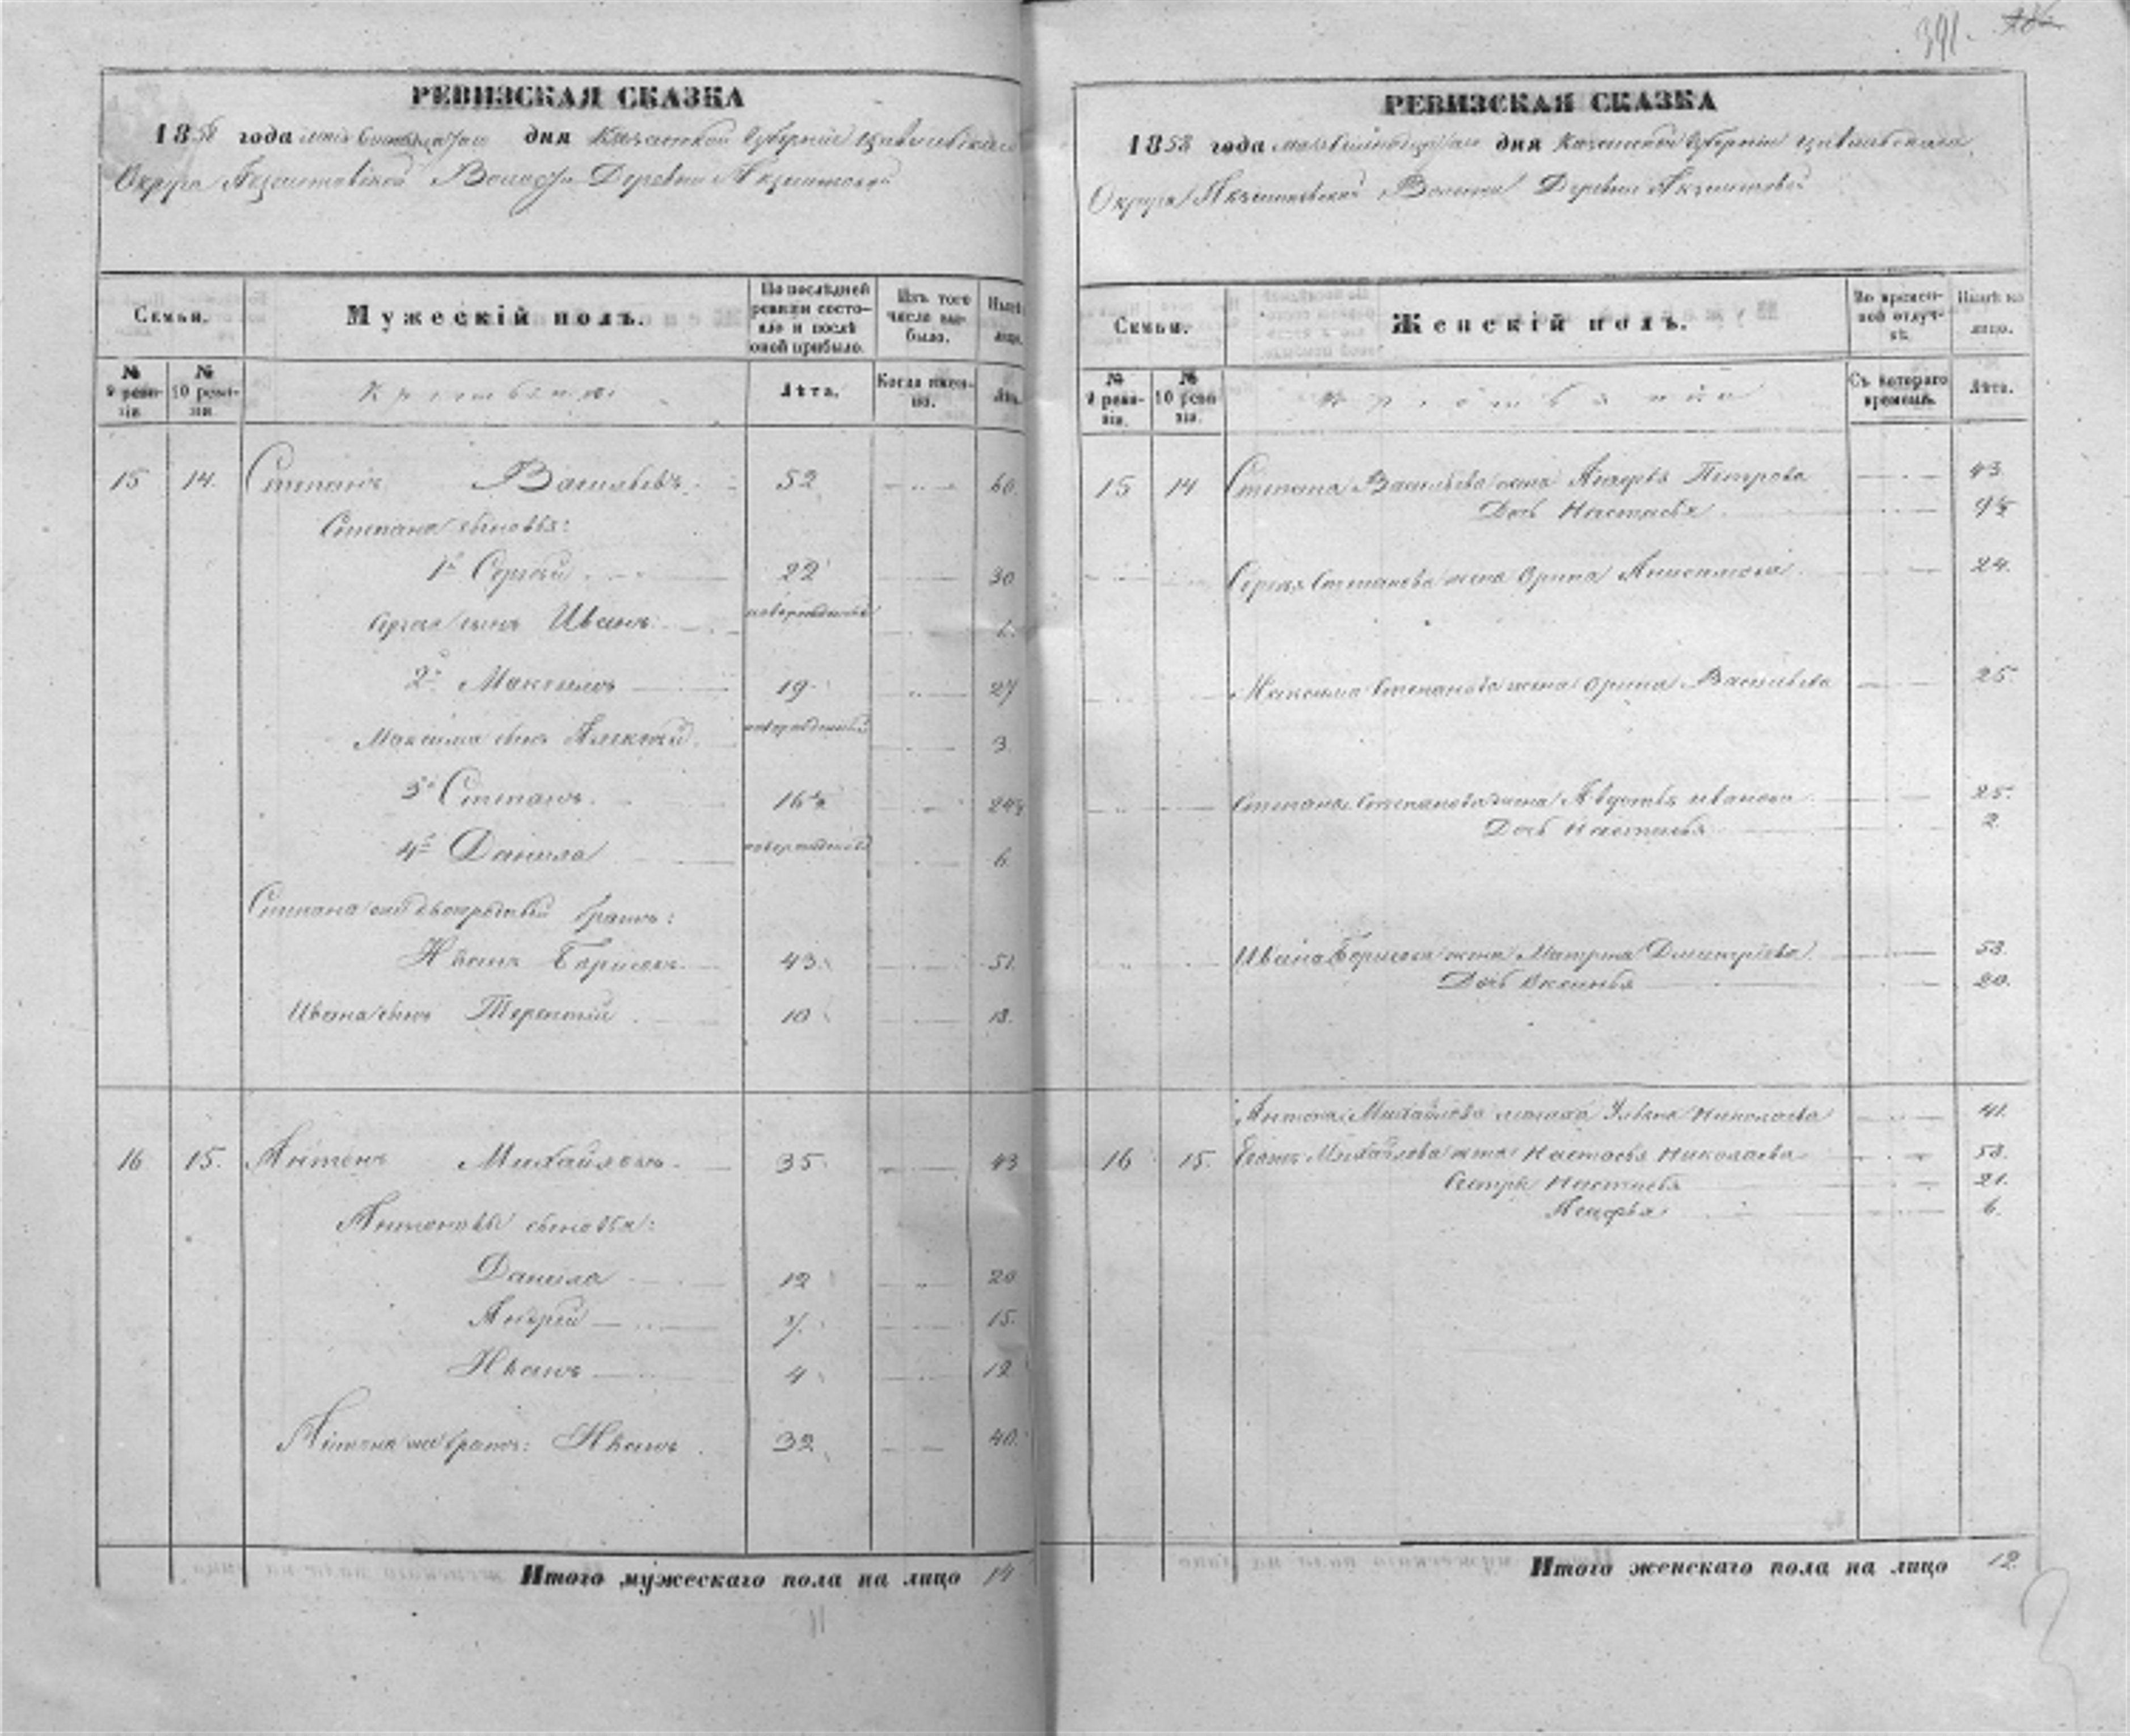 391.
РЕВИЗСКАЯ СКАЗКА
1858 года дня Казанской Губернии Цивильскаго
Округа Волости Деревни
Семьи.
Мужескій полъ.
По послѣдней ревизіи состояло и послѣ оной прибыло.
Изъ того числа выбыло.
№ 9 ревизіи.
№ 10 ревизіи.
Лѣта.
Когда именно.
15 14. Степанъ Васильевъ 52 60.
Степана сыновья:
1й Сергѣй 22 30
Сергѣя сынъ Иванъ новорожденный
2й Максимъ 19 27
Максима сынъ Алексѣй новорожденный 3.
3й Степанъ 16½ 24½
4й Данила новорожденный 6.
Степана двоюродный братъ:
Иванъ Борисовъ 43 51.
Ивана сынъ Терентий 10 18.
16 15. Антонъ Михайловъ 35 43
Антоновы сыновья:
Данила 12 20
Андрей 7. 15.
Иванъ 4 12
Антона братъ: Иванъ 32 40.
Итого мужескаго пола на лицо 14
РЕВИЗСКАЯ СКАЗКА
1858 года дня Казанской Губернии Цивильскаго
Округа Волости Деревни
Семьи.
Женскій полъ.
Во временной отлучкѣ.
Нынѣ на лицо.
№ 9 ревизіи.
№ 10 ревизіи.
Съ котораго времени.
Лѣта.
15 14 Степана Васильева жена Петрова 43.
Дочь Настасья
Сергѣя Степанова жена Орина 24.
Максима Степанова жена Орина Васильева 25.
Степана Степанова жена Иванова 25.
Дочь Настасья 2.
Ивана Борисова жена Матрена Дмитріева 53.
Дочь Оксинья 20.
Антона Михайлова Николаева 41.
16 15. Михайлова жена Настасья Николаева 53.
Сестра Настасья 21.
6.
Итого женскаго пола на лицо 12.